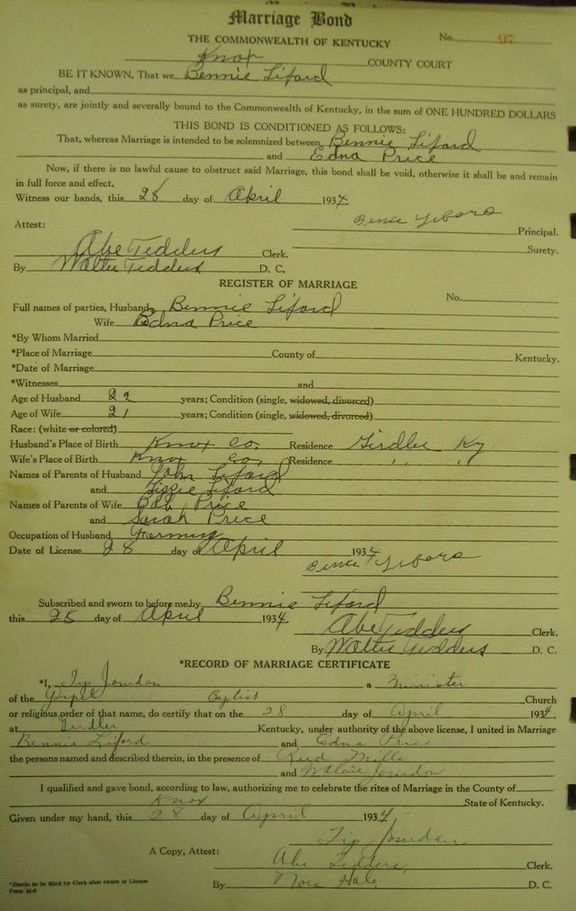 Marriage Bond
THE COMMONWEALTH OF KENTUCKY No. 97
Knox COUNTY COURT
BE IT KNOWN, That we Bennie Liford
as principal, and
as surety, are jointly and severally bound to the Commonwealth of Kentucky, in the sum of ONE HUNDRED DOLLARS
THIS BOND IS CONDITIONED AS FOLLOWS:
That, whereas Marriage is intended to be solemnized between Bennie Liford
and Edna Price
Now, if there is no lawful cause to obstruct said Marriage, this bond shall be void, otherwise it shall be and remain
in full force and effect.
Witness our hands, this 28 day of April 1934
Principal.
Attest:
Surety.
Abe Tedders Clerk.
By Walter Tedders D. C.
REGISTER OF MARRIAGE
No.
Full names of parties, Husband Bennie Liford
Wife Edna Price
*By Whom Married
*Place of Marriage County of Kentucky.
*Date of Marriage
*Witnesses and
Age of Husband 22 years; Condition (single, widowed, divorced)
Age of Wife 21 years; Condition (single, widowed, divorced)
Race: (white or colored)
Husband's Place of Birth Knox Co. Residence Girdler Ky
Wife's Place of Birth Knox Co. Residence " "
Names of Parents of Husband John Liford
and Lizzie Liford
Names of Parents of Wife Bob Price
and Sarah Price
Occupation of Husband Farming
Date of License 28 day of April 1934
Subscribed and sworn to before me by Bennie Liford
this 28 day of April 1934
Abe Tedders Clerk.
By Walter Tedders D. C.
*RECORD OF MARRIAGE CERTIFICATE
*I, Tip Jourdan a Minister
of the Baptist Church
or religious order of that name, do certify that on the 28 day of April 1934
at Girdler Kentucky, under authority of the above license, I united in Marriage
Bennie Liford and Edna Price
the persons named and described therein, in the presence of Mills
and Jourdan
I qualified and gave bond, according to law, authorizing me to celebrate the rites of Marriage in the County of
Knox State of Kentucky.
Given under my hand, this 28 day of April 1934
Tip Jourdan
A Copy, Attest: Abe Tedders Clerk.
By Nora Hale D. C.
*Blanks to be filled by Clerk after return of License